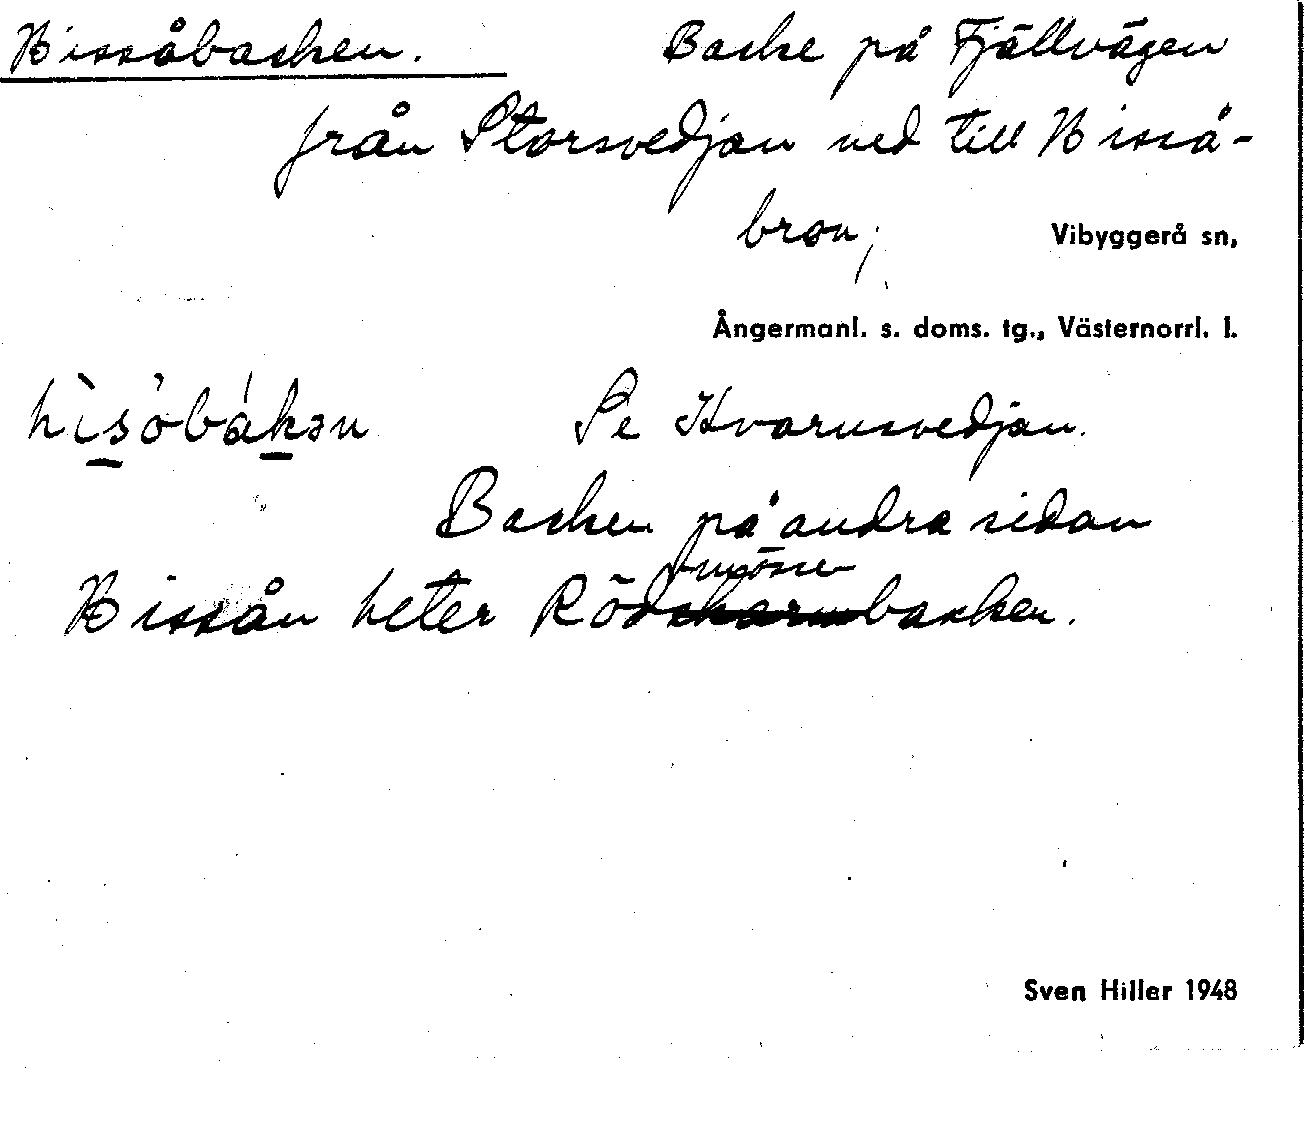 Hissåbacken. Backe på Fjällvägen
från Storsvedjan ned till Hisså-
bron;
Vibyggerå sn,
Ångermanl. s. doms. tg., Västernorrl. l.
hìsòbákən Se Kvarnsvedjan.
Backen på andra sidan
Hissån heter Röd backen.
Sven Hiller 1948